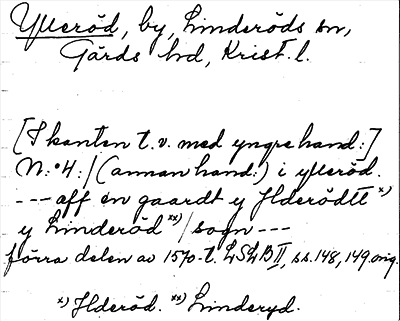 Ylleröd, by, Linderöds sn,
Gärds hd, Krist. l.
[I kanten t. v. med yngre hand:]
N:o 4:/(annan hand:) i ylleröd.
--- aff en gaardt y Ilderödtt x)
y Linderöd xx)/sogn ---
förra delen av 1570-t. LSLB II, ss. 148, 149 orig.
x) Ilderöd. xx) Linderyd.